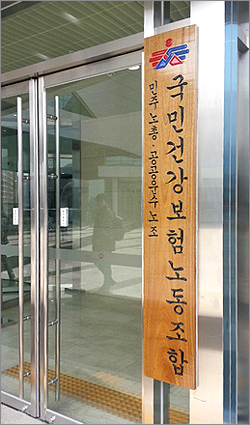 국민건강보험노동조합
민주노총·공공운수노조